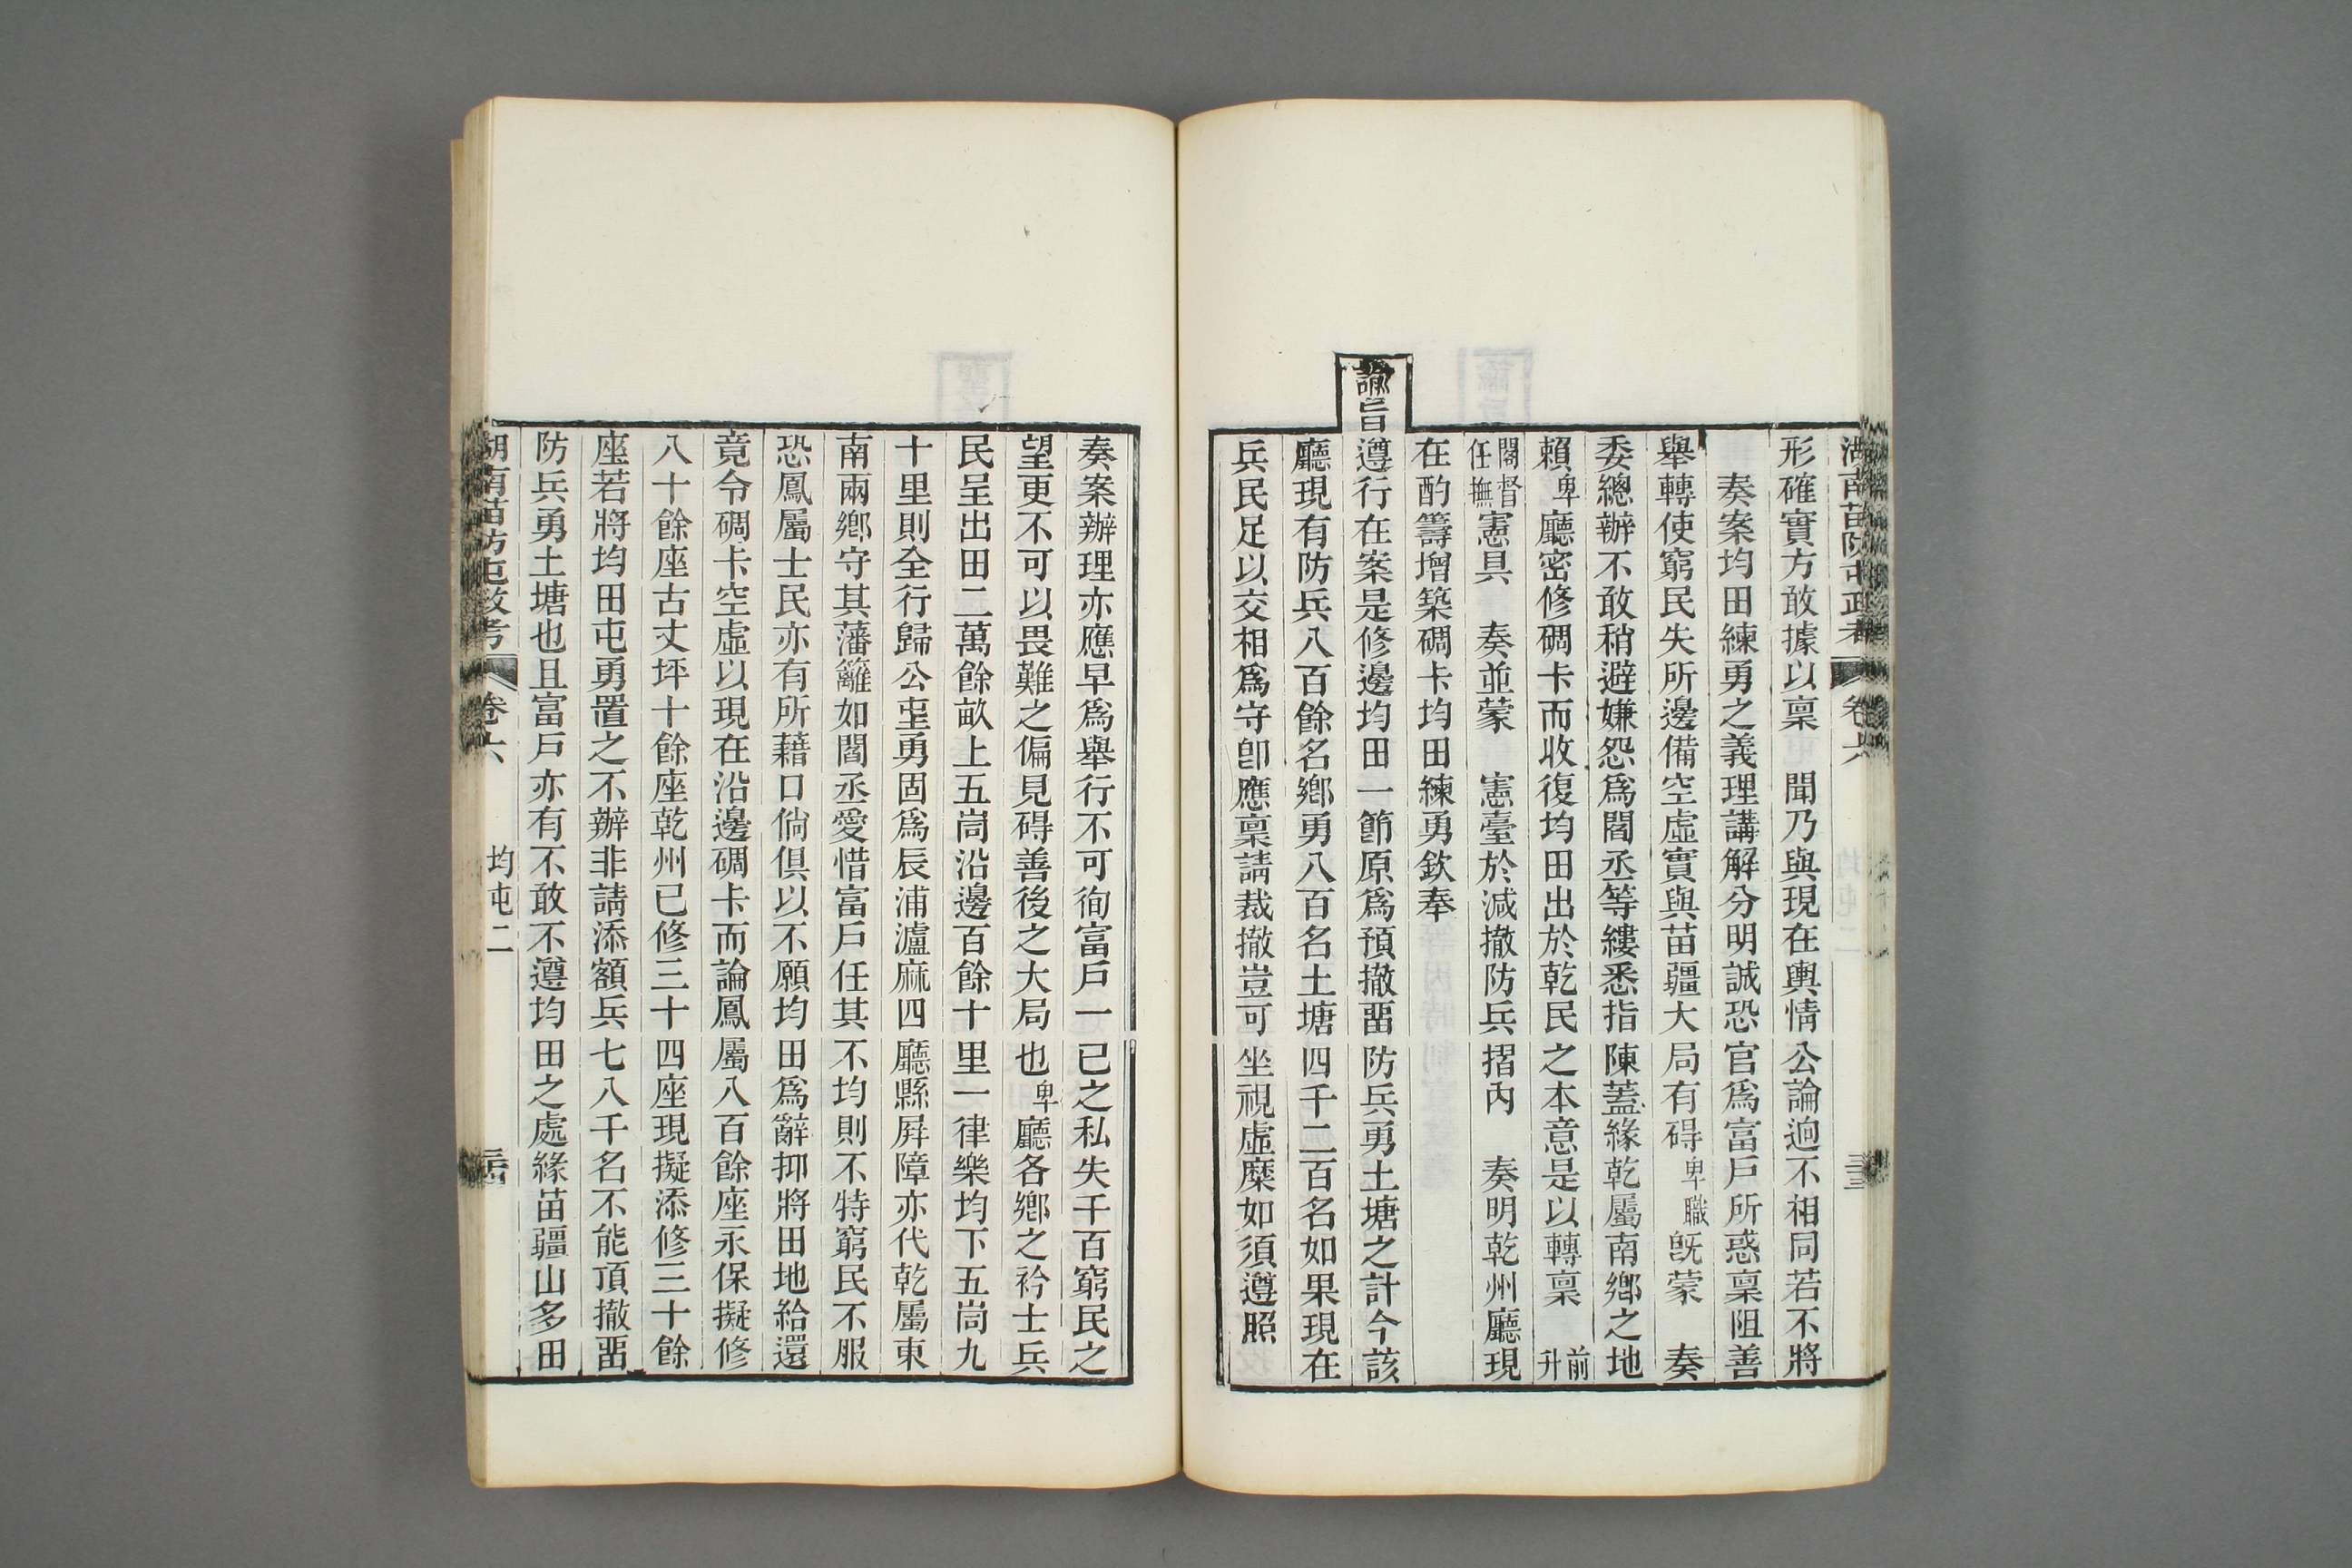 湖南苗防屯政考 卷六 三十三
形確實方敢據以稟 聞乃與現在輿情公論逈不相同若不將
奏案均田練勇之義理講解分明誠恐官為富戶所惑稟阻善
舉轉使窮民失所邊備空虛實與苗疆大局有碍卑職旣蒙 奏
委總辦不敢稍避嫌怨爲閻丞等縷悉指陳蓋緣乾屬南鄉之地
賴卑廳密修碉卡而收復均田出於乾民之本意是以轉稟 前升
閣督任撫憲具 奏並蒙 憲臺於減撤防兵摺內 奏明乾州廳現
在酌籌增築碉卡均田練勇欽奉
諭旨遵行在案是修邊均田一節原爲預撤畱防兵勇土塘之計今該
廳現有防兵八百餘名鄉勇八百名土塘四千二百名如果現在
兵民足以交相爲守卽應稟請裁撤豈可坐視虛糜如須遵照
奏案辦理亦應早爲舉行不可徇富戶一已之私失千百窮民之
望更不可以畏難之偏見碍善後之大局也卑廳各鄉之衿士兵
民呈出田二萬餘畝上五峝沿邊百餘十里一律樂均下五峝九
十里則全行歸公屯勇固爲辰浦瀘麻四廳縣屏障亦代乾屬東
南兩鄉守其藩籬如閻丞愛惜富戶任其不均則不特窮民不服
恐鳳屬士民亦有所藉口倘俱以不願均田爲辭抑將田地給還
竟令碉卡空虛以現在沿邊碉卡而論鳳屬八百餘座永保擬修
八十餘座古丈坪十餘座乾州已修三十四座現擬添修三十餘
座若將均田屯勇置之不辦非請添額兵七八千名不能頂撤畱
防兵勇土塘也且富戶亦有不敢不遵均田之處緣苗疆山多田
湖南苗防屯政考 卷六 均屯二 三十四